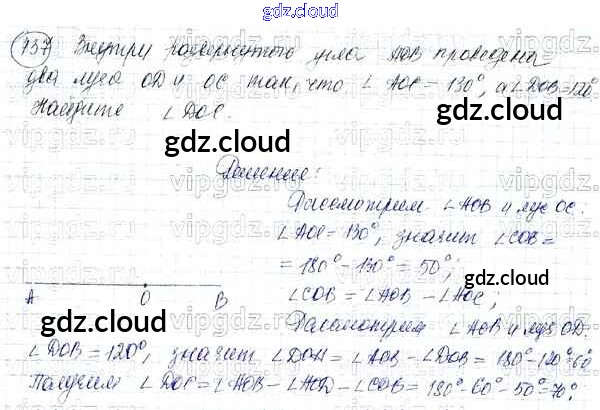 gdz.cloud
137 Внутри развернутого угла AOB проведены
два луча OD и OC так, что ∠ AOC = 130°, а ∠DOB=120°
Найдите ∠ DOC.
gdz.cloud
gdz.cloud
Решение:
Рассмотрим ∠AOB и луч OC.
∠AOC = 130°, значит ∠COB =
= 180° - 130° = 50°;
gdz.cloud
∠COB = ∠AOB - ∠AOC;
A O B
gdz.cloud
Рассмотрим ∠AOB и луч OD.
∠DOB = 120°, значит ∠DOA = ∠AOB - ∠DOB = 180°-120°=60°
Получим ∠ DOC = ∠AOB - ∠AOD - ∠COB = 180°-60°-50°=70°.
gdz.cloud
gdz.cloud